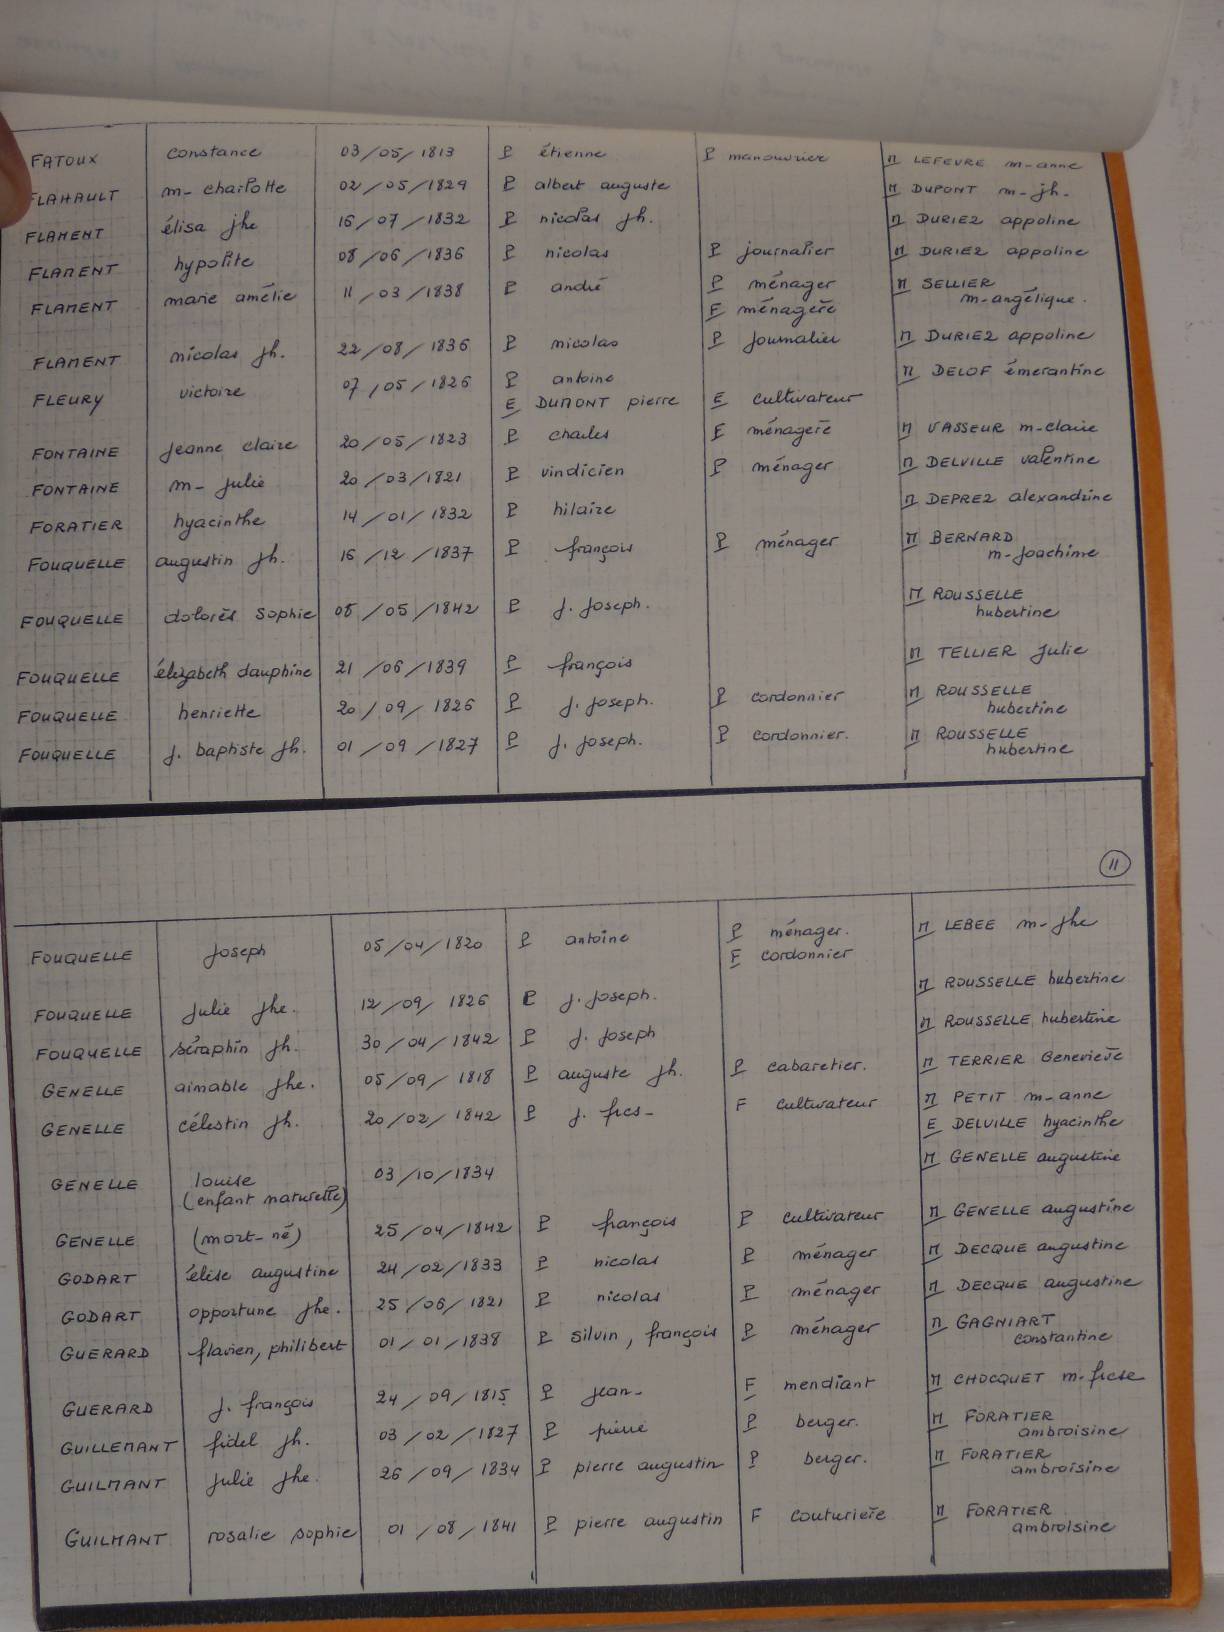 FATOUX constance 03/05/1813 P étienne P manouvrier M LEFEVRE m-anne
FLAHAULT m-charlotte 02/05/1829 P albert auguste M DUPONT m-jh.
FLAMENT élisa jhe 16/07/1832 P nicolas jh. M DURIEZ appoline
FLAMENT hypolite 08/06/1836 P nicolas P journalier M DURIEZ appoline
FLAMENT marie amélie 11/03/1838 P andré P ménager M SELLIER
F ménagère m-angélique.
FLAMENT nicolas jh. 22/08/1836 P nicolas P journalier M DURIEZ appoline
FLEURY victoire 07/05/1826 P antoine M DELOF émerantine
E DUMONT pierre E cultivateur
FONTAINE jeanne claire 20/05/1823 P charles F ménagère M VASSEUR m-claire
FONTAINE m-julie 20/03/1821 P vindicien P ménager M DELVILLE valentine
FORATIER hyacinthe 14/01/1832 P hilaire M DEPREZ alexandrine
FOUQUELLE augustin jh. 16/12/1837 P françois P ménager M BERNARD
m-joachime
FOUQUELLE dolorès sophie 08/05/1842 P j. joseph. M ROUSSELLE
hubertine
FOUQUELLE élizabeth dauphine 21/06/1839 P françois M TELLIER julie
FOUQUELLE henriette 20/09/1826 P j. joseph. P cordonnier M ROUSSELLE
hubertine
FOUQUELLE j. baptiste jh. 01/09/1827 P j. joseph. P cordonnier. M ROUSSELLE
hubertine
11
FOUQUELLE joseph 05/04/1820 P antoine P ménager. M LEBEE m-jhe
F cordonnier
FOUQUELLE julie jhe. 12/09/1826 P j. joseph. M ROUSSELLE hubertine
FOUQUELLE séraphin jh. 30/04/1842 P j. joseph M ROUSSELLE hubertine
GENELLE aimable jhe. 05/09/1818 P auguste jh. P cabaretier. M TERRIER Geneviève
GENELLE célestin jh. 20/02/1842 P j. frcs- F cultivateur M PETIT m-anne
E DELVILLE hyacinthe
GENELLE louise 03/10/1834 M GENELLE augustine
(enfant naturelle)
GENELLE (mort-né) 25/04/1842 P françois P cultivateur M GENELLE augustine
GODART élise augustine 24/02/1833 P nicolas P ménager M DECQUE augustine
GODART opportune jhe. 25/06/1821 P nicolas P ménager M DECQUE augustine
GUERARD flavien, philibert 01/01/1838 P silvin, françois P ménager M GAGNIART
constantine
GUERARD j. françois 24/09/1815 P jean- F mendiant M CHOCQUET m-frcse
GUILLEMANT fidel jh. 03/02/1827 P pierre P berger. M FORATIER
ambroisine
GUILMANT julie jhe. 26/09/1834 P pierre augustin P berger. M FORATIER
ambroisine
GUILMANT rosalie sophie 01/08/1841 P pierre augustin F couturière M FORATIER
ambroisine